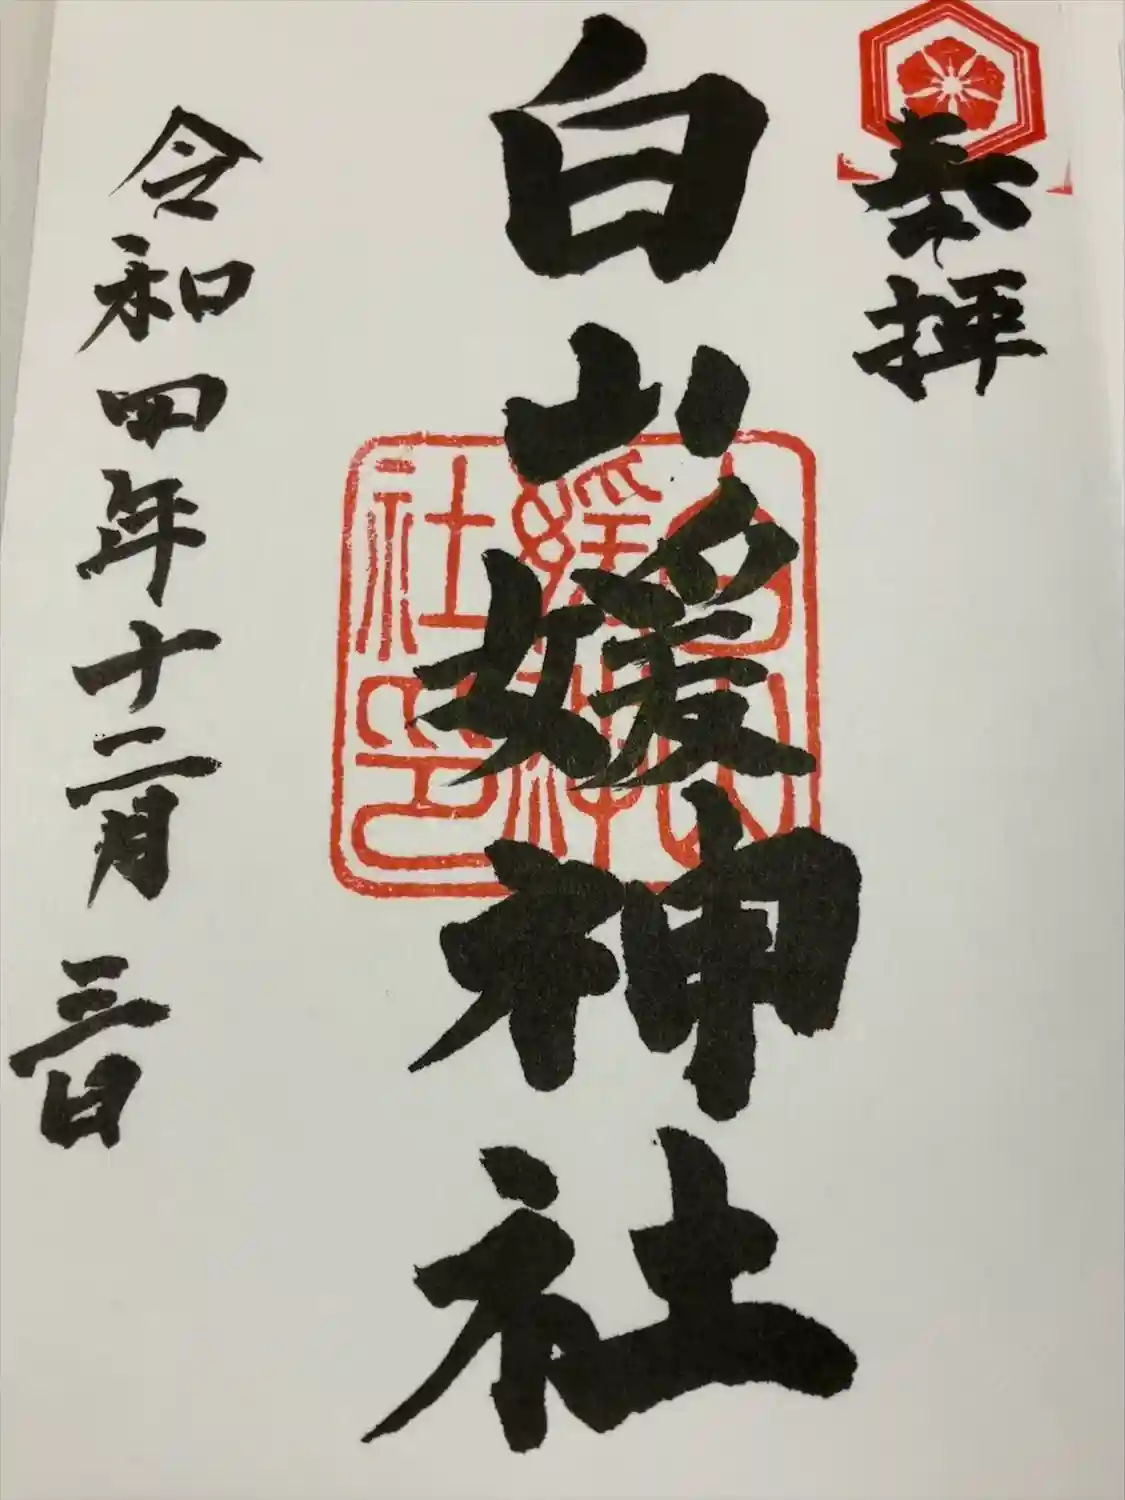 奉拝
白山媛神社
白山
媛神
社印
令和四年十二月三日